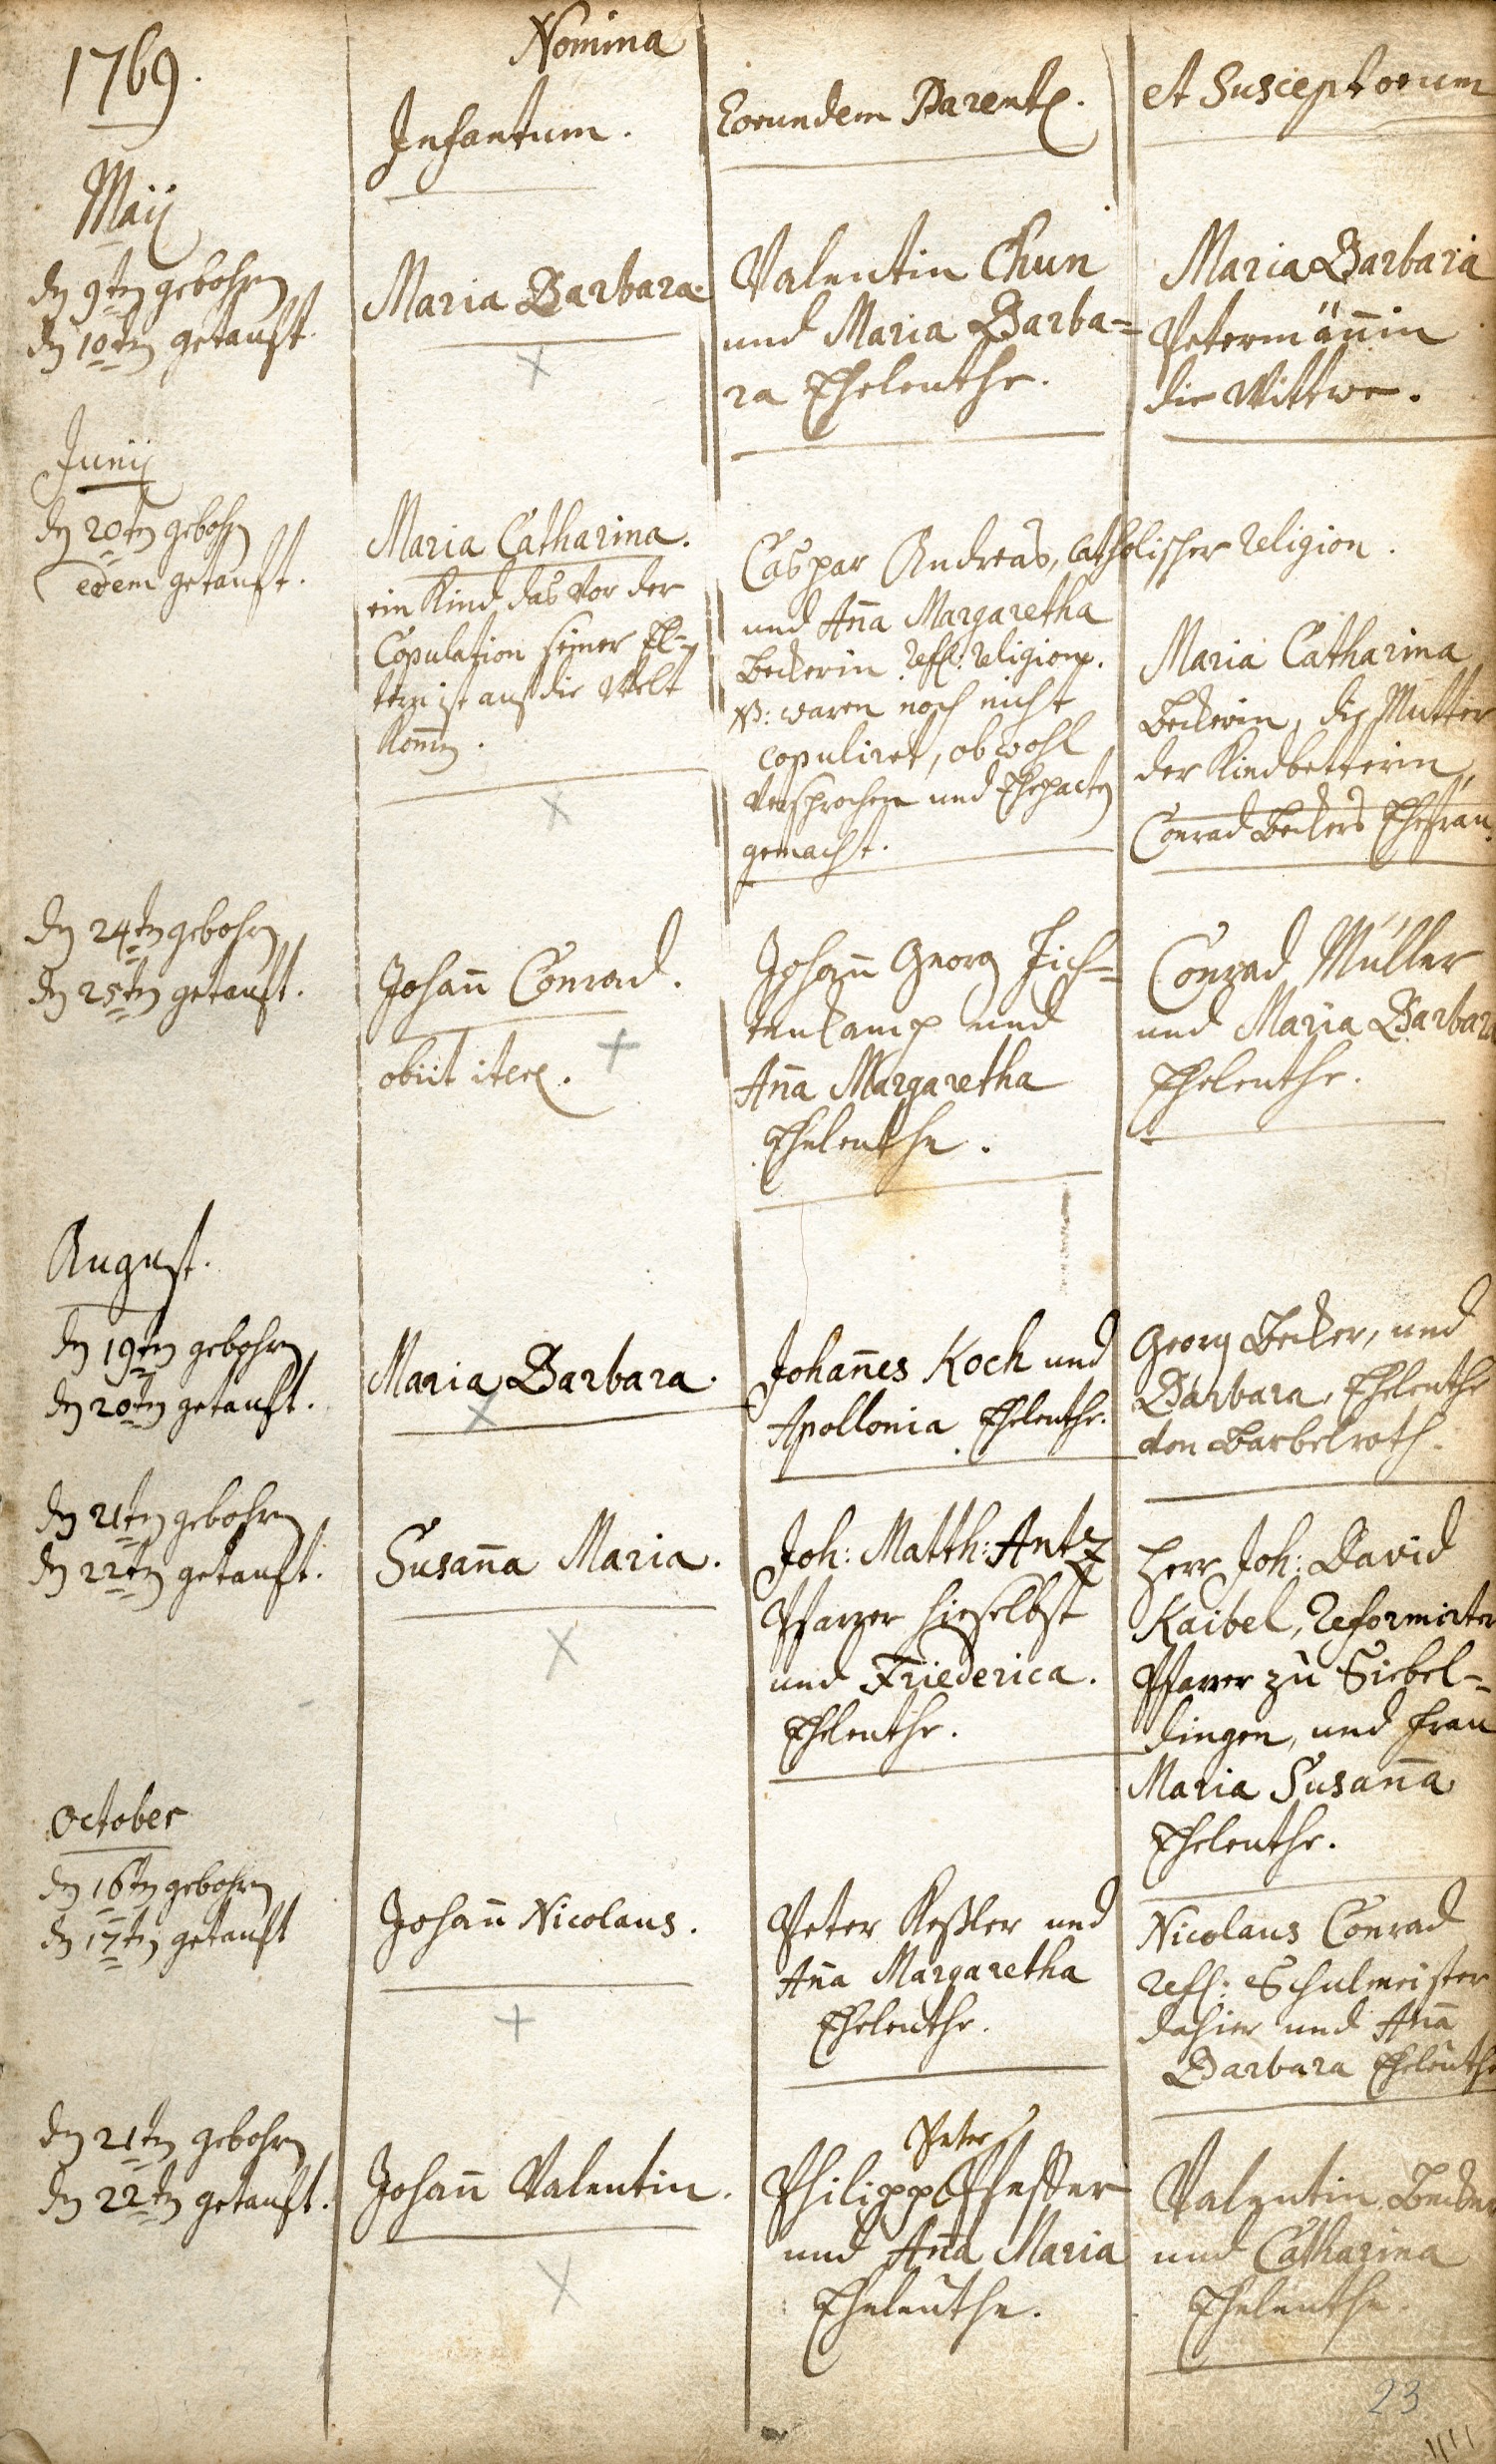 1769.
Nomina
Infantum.
Eorundem Parent.
et Susceptorum
Maij
den 9ten gebohren
den 10ten getauft.
Maria Barbara.
Valentin Chun
und Maria Barba=
ra Eheleuthe.
Maria Barbara
Petermännin
die Wittwe.
Junij
den 20ten gebohrn
eodem getauft.
Maria Catharina.
ein Kind das vor der
Copulation seiner El=
tern ist auf die Welt
komen.
Caspar Andreas, catholischer religion.
und Ana Margaretha
Beckerin ref: religion.
NB: waren noch nicht
copuliret, obwohl
versprochen und Ehepacten
gemacht.
Maria Catharina
Beckerin, die Mutter
der Kindbetterin,
Conrad Beckers Ehefrau.
den 24ten gebohren
den 25ten getauft.
Johan Conrad.
obiit iter.
Johan Georg Fich=
tenkamp und
Ana Margaretha
Eheleuthe.
Conrad Müller
und Maria Barbara
Eheleuthe.
August.
den 19ten gebohren
den 20ten getauft.
Maria Barbara.
Johanes Koch und
Apollonia Eheleuthe.
Georg Becker, und
Barbara, Eheleuthe
von Barbelroth.
den 21ten gebohren
den 22ten getauft.
Susana Maria.
Joh: Matth: Antz
Pfarrer hieselbst
und Friederica.
Eheleuthe.
Herr Joh: David
Kaibel, Reformirter
Pfarrer zu Siebel=
dingen, und Frau
Maria Susana
Eheleuthe.
October
den 16ten gebohren
den 17ten getauft
Johan Nicolaus.
Peter Keßler und
Ana Margaretha
Eheleuthe.
Nicolaus Conrad
ref: Schulmeister
dahier und Ana
Barbara Eheleuthe
den 21ten gebohren
den 22ten getauft.
Johan Valentin.
Peter
Philipp Pfeffer
und Ana Maria
Eheleuthe.
Valentin Becker
und Catharina
Eheleuthe.
23